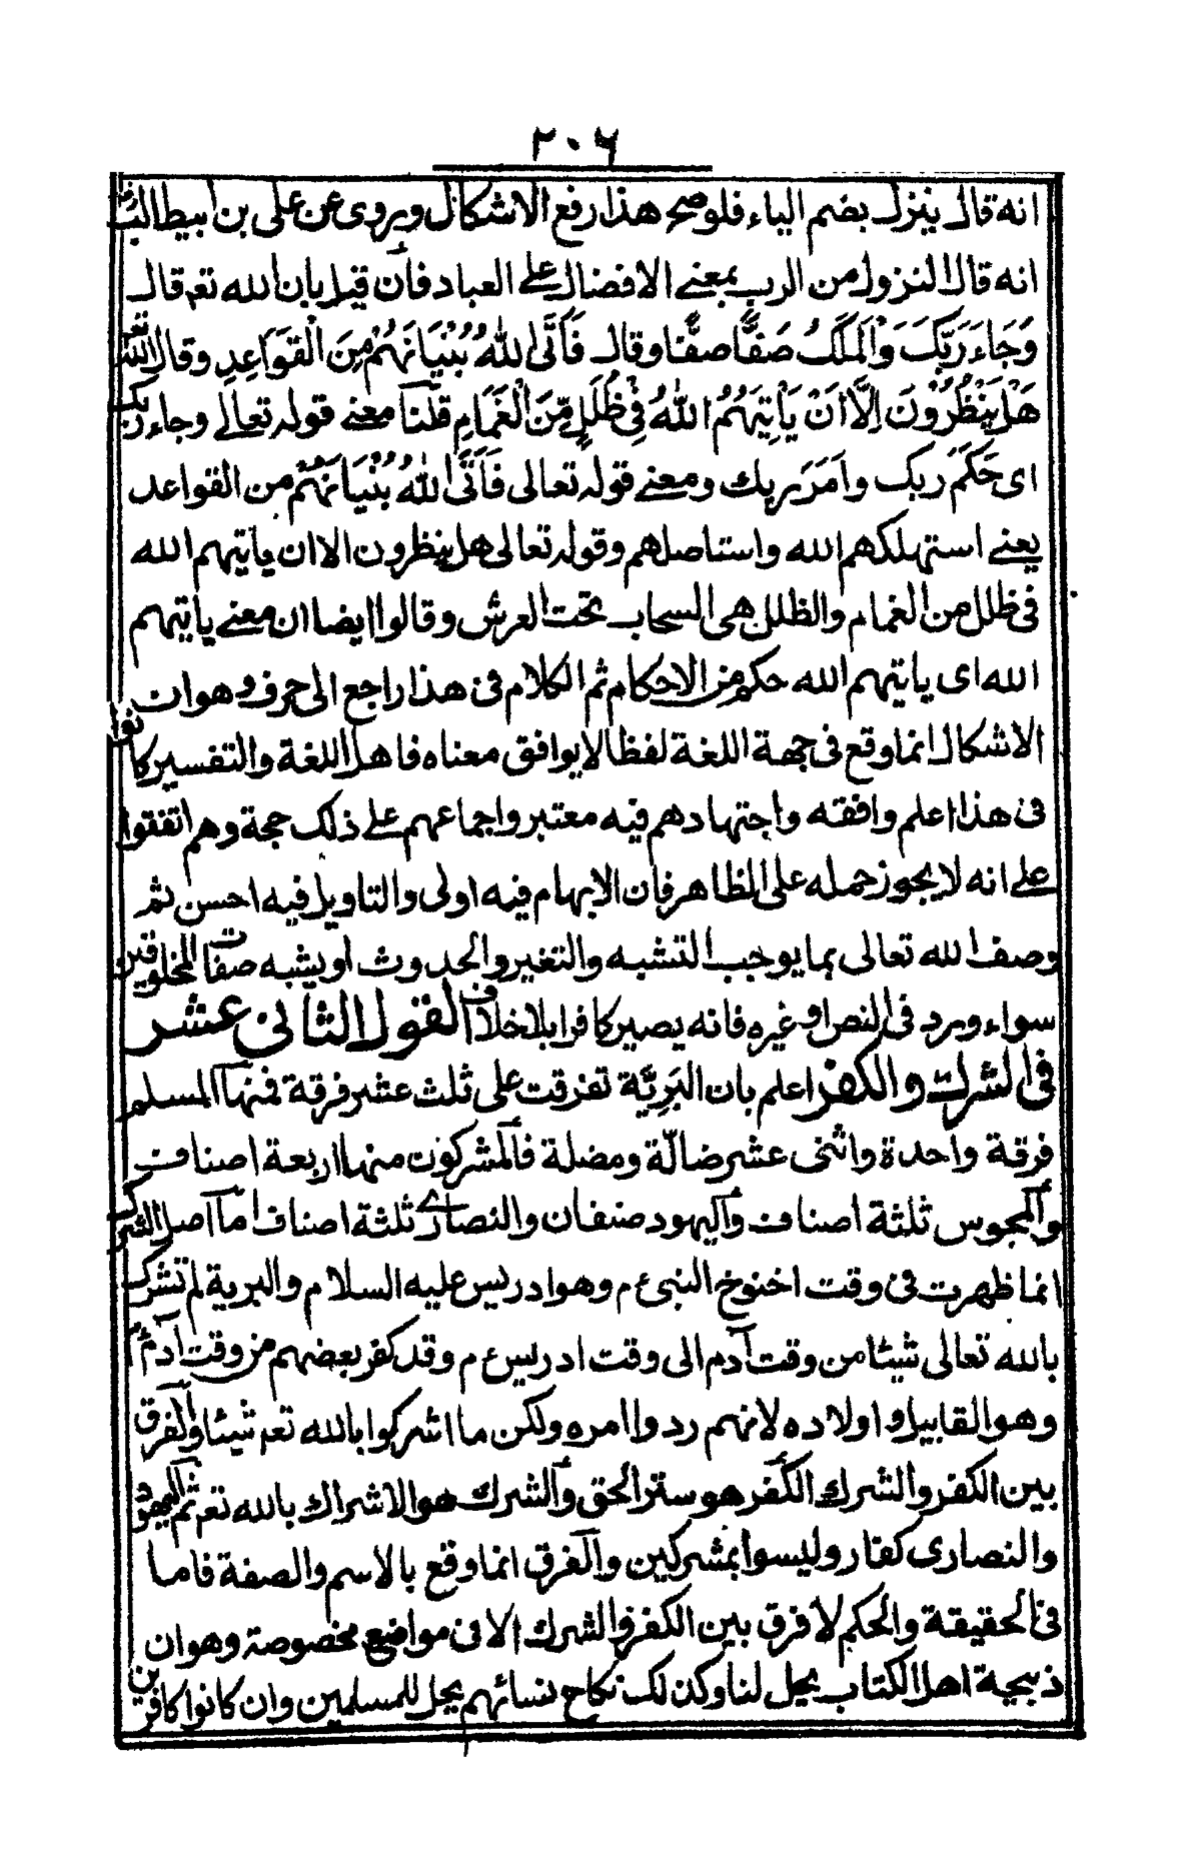 ٢٠٦
انه قال ينزل بضم الياء فلو صح هذا رفع الاشكال ويروى عن على بن ابيطالب رض
انه قال النزول من الرب بمعنے الافضال علے العباد فان قيل بان الله تعم قال
وَجَاءَ رَبُّكَ وَالْمَلَكُ صَفًّا صَفًّا وقال فَاَتَى اللهُ بُنْيَانَهُمْ مِنَ الْقَوَاعِدِ وقال الله تعم
هَلْ يَنْظُرُوْنَ اِلَّا اَنْ يَاْتِيَهُمُ اللهُ فِىْ ظُلَلٍ مِّنَ الْغَمَامِ قلنا معنے قوله تعالے وجاء ربك
اى حَكَمَ ربك واَمَرَ ربك ومعنے قوله تعالى فَاَتَى اللهُ بُنْيَانَهُمْ من القواعد
يعنے استهلكهم الله واستاصلهم وقوله تعالى هل ينظرون الا ان ياتيهم الله
فى ظلل من الغمام والظلل هى السحاب تحت العرش وقالوا ايضا ان معنے ياتيهم
الله اى ياتيهم الله حكم من الاحكام ثم الكلام فى هذا راجع الى حرف وهو ان
الاشكال انما وقع فى جهة اللغة لفظا لا يوافق معناه فاهل اللغة والتفسير كانوا
فى هذا اعلم وافقه واجتهادهم فيه معتبر واجماعهم علے ذلك حجة وهم اتفقوا
علے انه لا يجوز حمله على الظاهر فان الابهام فيه اولى والتاويل فيه احسن ثم
وصف الله تعالى بما يوجب التشبه والتغير والحدوث او يشبه صفات المخلوقين
سواء ورد فى النص او غيره فانه يصير كافرا بلا خلاف القول الثانى عشر
فى الشرك والكفر اعلم بان البَرِيَّة تفرقت على ثلث عشر فرقة فمنها المسلم
فرقة واحدة واثنى عشر ضالّة ومضلة فالمشركون منها اربعة اصناف
والمجوس ثلثة اصناف واليهود صنفان والنصارے ثلثة اصناف اما اصل الشرك
انما ظهرت فى وقت اخنوخ النبى ع م وهو ادريس عليه السلام والبرية لم تشرك
بالله تعالى شيئا من وقت آدم الى وقت ادريس ع م وقد كفر بعضهم من وقت آدم ع م
وهو القابيل واولاده لانهم ردوا امره ولكن ما اشركوا بالله تعم شيئا والفرق
بين الكفر والشرك الكفر هو ستر الحق والشرك هو الاشراك بالله تعم ثم اليهود
والنصارى كفار وليسوا بمشركين والفرق انما وقع بالاسم والصفة فاما
فى الحقيقة والحكم لا فرق بين الكفر والشرك الا فى مواضع مخصوصة وهو ان
ذبيحة اهل الكتاب يحل لنا وكذلك نكاح نسائهم يحل للمسلمين وان كانوا كافرين